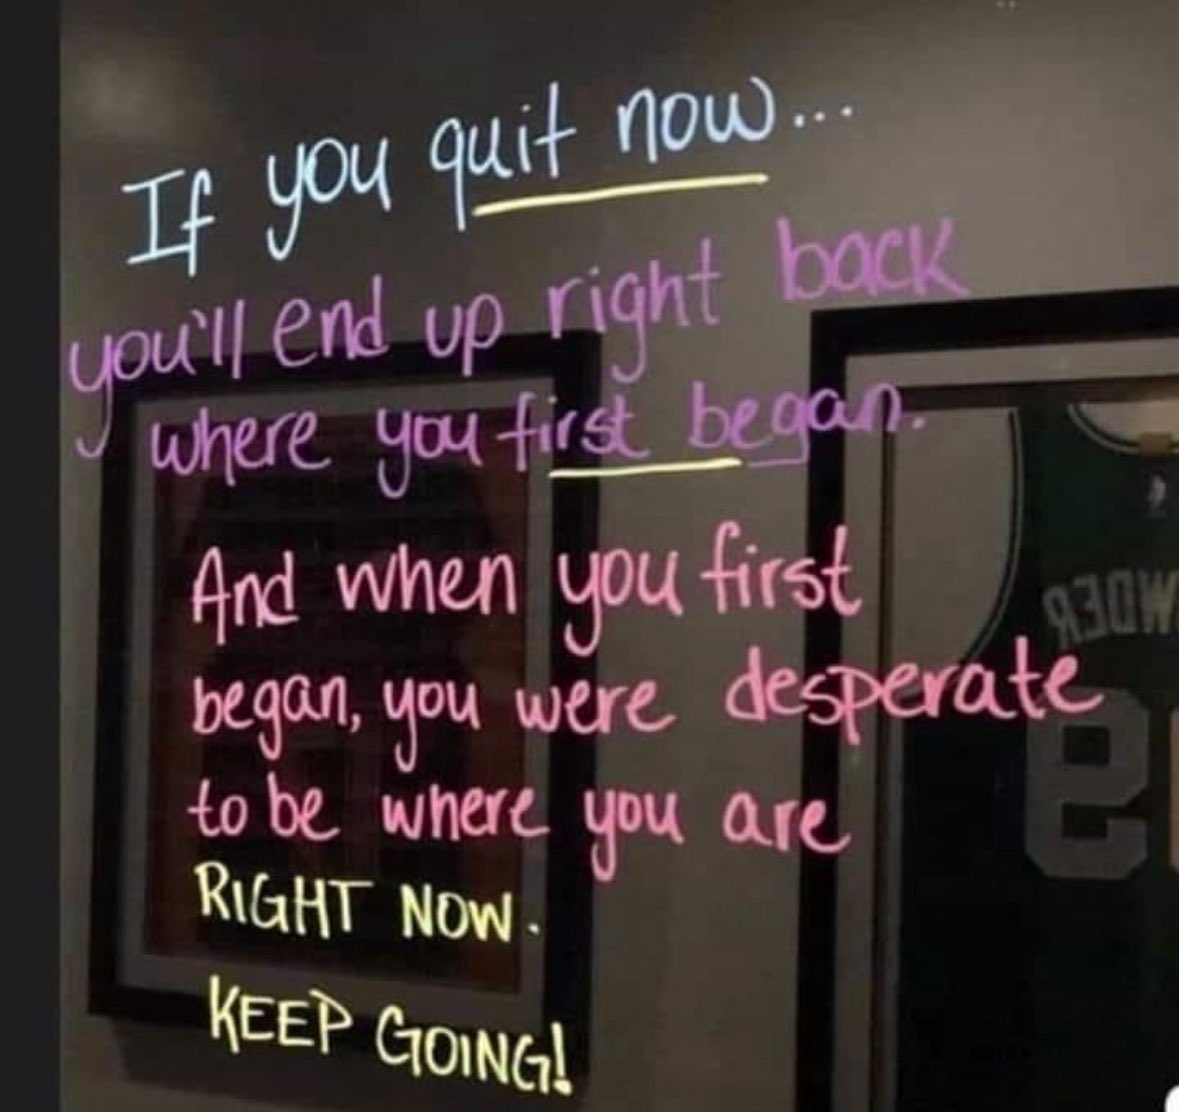 If you quit now...
you'll end up right back
where you first began.
And when you first
began, you were desperate
to be where you are
RIGHT NOW.
KEEP GOING!
WDER
9